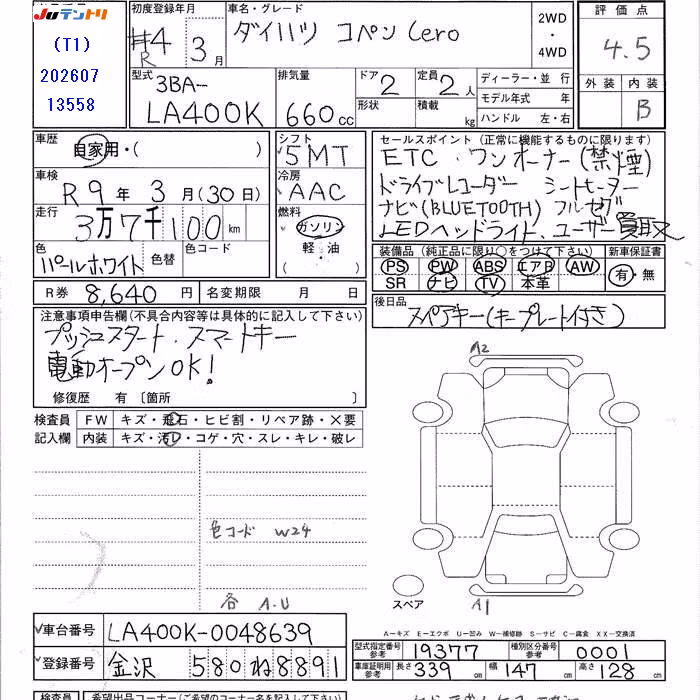 JUテントリ
(T1)
202607
13558
初度登録年月
R4 3月
車名・グレード
ダイハツ コペン Cero
2WD
・
4WD
評価点
4.5
外装 内装
B
型式
3BA-
LA400K
排気量
660cc
ドア 2
形状
定員 2人
積載 kg
ディーラー・並行
モデル年式 年
ハンドル 左・右
車歴
自家用・( )
車検
R 9年 3月(30日)
走行
3万7千100km
色
パールホワイト
色替
色コード
シフト
5MT
冷房
AAC
燃料
ガソリン
軽・油
( )
セールスポイント(正常に機能するものに限ります)
ETC・ワンオーナー(禁煙)
ドライブレコーダー シートヒーター
ナビ(BLUETOOTH) フルセグ
LEDヘッドライト、ユーザー買取
装備品(純正品に限り○をつけて下さい)
PS PW ABS エアB AW
SR ナビ TV 本革
新車保証書
有・無
R券 8,640円
名変期限 月 日
後日品
スペアキー(キープレート付き)
注意事項申告欄(不具合内容等は具体的に記入して下さい)
プッシュスタート、スマートキー
電動オープンOK!
修復歴 有〔箇所 〕
検査員
記入欄
FW キズ・飛石・ヒビ割・リペア跡・X要
内装 キズ・汚レ・コゲ・穴・スレ・キレ・破レ
色コード W24
各 A.U
A2
スペア
A1
A－キズ E－エクボ U－凹み W－補修跡 S－サビ C－腐食 XX－交換済
車台番号 LA400K-0048639
登録番号 金沢 580 ね8891
型式指定番号
参考
19377
種別区分番号
参考
0001
車庫証明用
参考
長さ 339cm 幅 147cm 高さ 128cm
検査員 希望出品コーナー(ご希望のコーナー名を記入